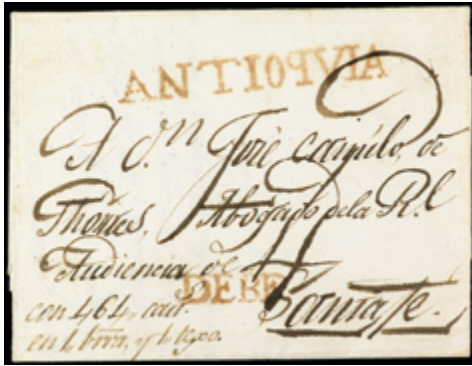 ANTIOQVIA
A D.n José Camilo de
Thorres, Abogado de la R.l
Audiencia de
DEBE
Santafe.
con 464, cast.
en 1,